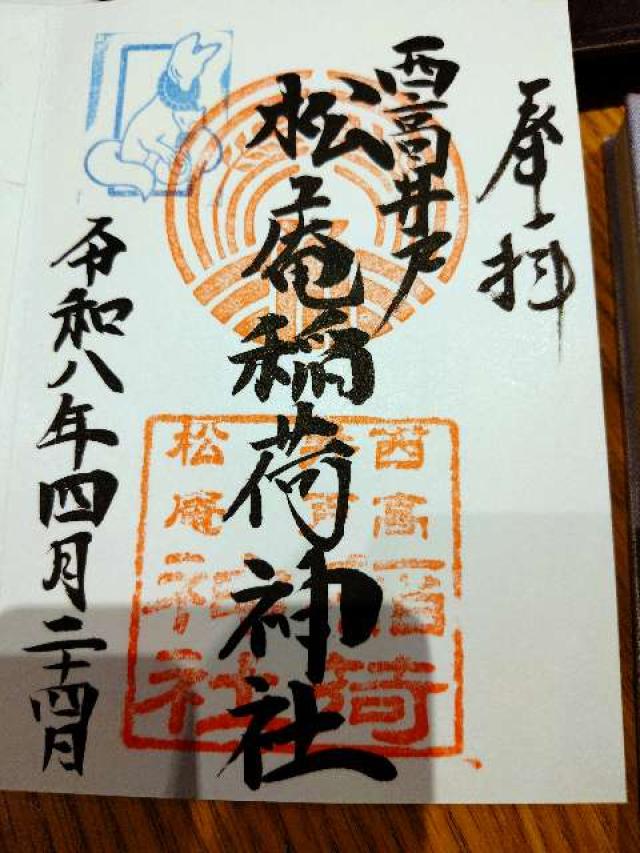 奉拝
西高井戸
松庵稲荷神社
令和八年四月二十四日
西高
松庵
稲荷
神社